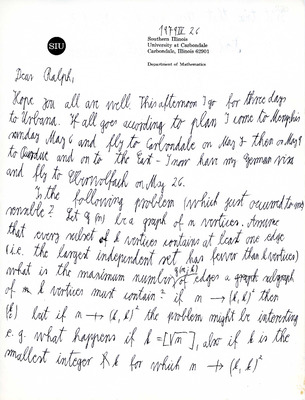 1979 IV 26
SIU
Southern Illinois
University at Carbondale
Carbondale, Illinois 62901
Department of Mathematics
Dear Ralph,
Hope you all are well. This afternoon I go for three days
to Urbana. If all goes according to plan I come to Memphis
sunday May 6 and fly to Carbondale on May 7 then on May 9
to Purdue and on to the East - I now have my German visa
and fly to Oberwolfach on May 26.
Is the following problem (which just occured to me)
sensible? Let G(n) be a graph of n vertices. Assume
that every subset of k vertices contains at least one edge
(i.e. the largest independent set has fewer than k vertices)
what is the maximum number of edges a graph subgraph
of k vertices must contain? if n → (k, k)² then
but if n → (k, k)² the problem might be interesting
e.g. what happens if k = [√n], also if k is the
smallest integer k for which n → (k, k)²